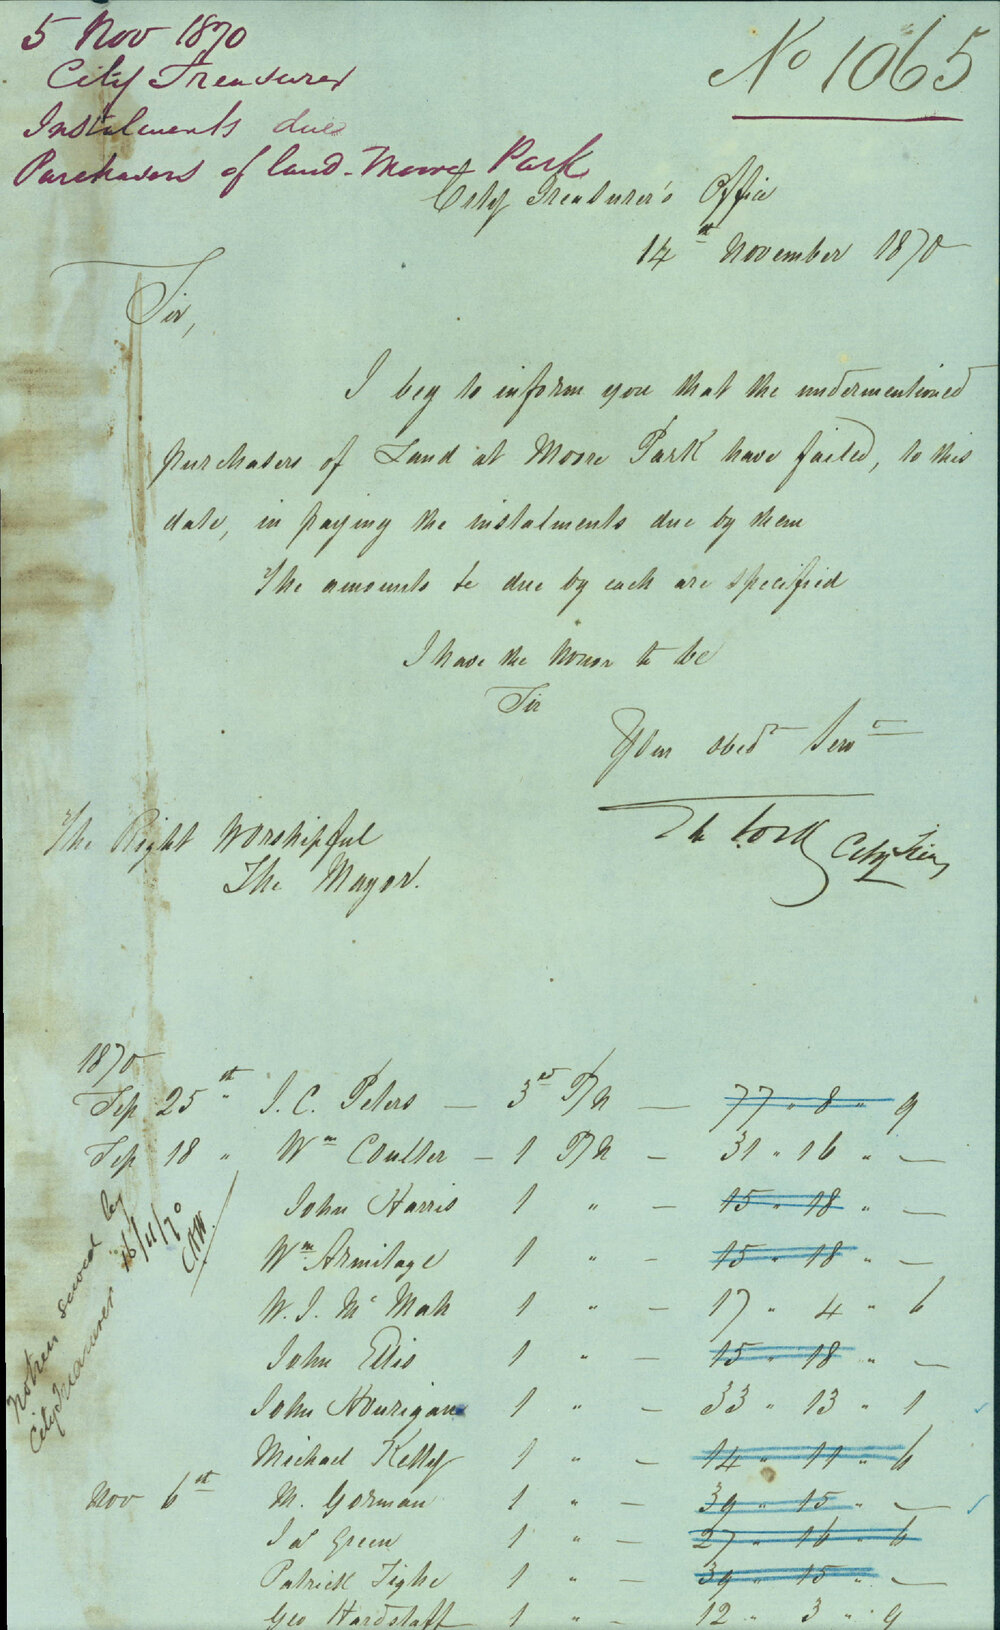 5 Nov 1870
No 1065
City Treasurer
Instalments due
Purchasers of land - Moore Park
City Treasurer's Office
14th November 1870
Sir,
I beg to inform you that the undermentioned
purchasers of Land at Moore Park have failed, to this
date, in paying the instalments due by them
The amounts due by each are specified
I have the honor to be
Sir
Your obedt Servt
City Treas
The Right Worshipful
The Mayor.
1870
Sep 25th " J. C. Peters — 3rd P/n — 77 " 8 " 9
Sep 18 " Wm Coulter — 1 P/n — 31 " 16 " —
John Harris 1 " — 15 " 18 " —
Wm Armitage 1 " — 15 " 18 " —
W. J. Mc Mah 1 " — 17 " 4 " 6
John Ellis 1 " — 15 " 18 " —
John Hourigan 1 " — 33 " 13 " 1
Michael Kelly 1 " — 14 " 11 " 6
Nov 6th M. Gorman 1 " — 39 " 15 " —
Jas Green 1 " — 27 " 16 " 6
Patrick Tighe 1 " — 39 " 15 " —
Geo Hardstaff 1 " — 12 " 3 " 9
Notices served by
City Treasurer 16/11/70